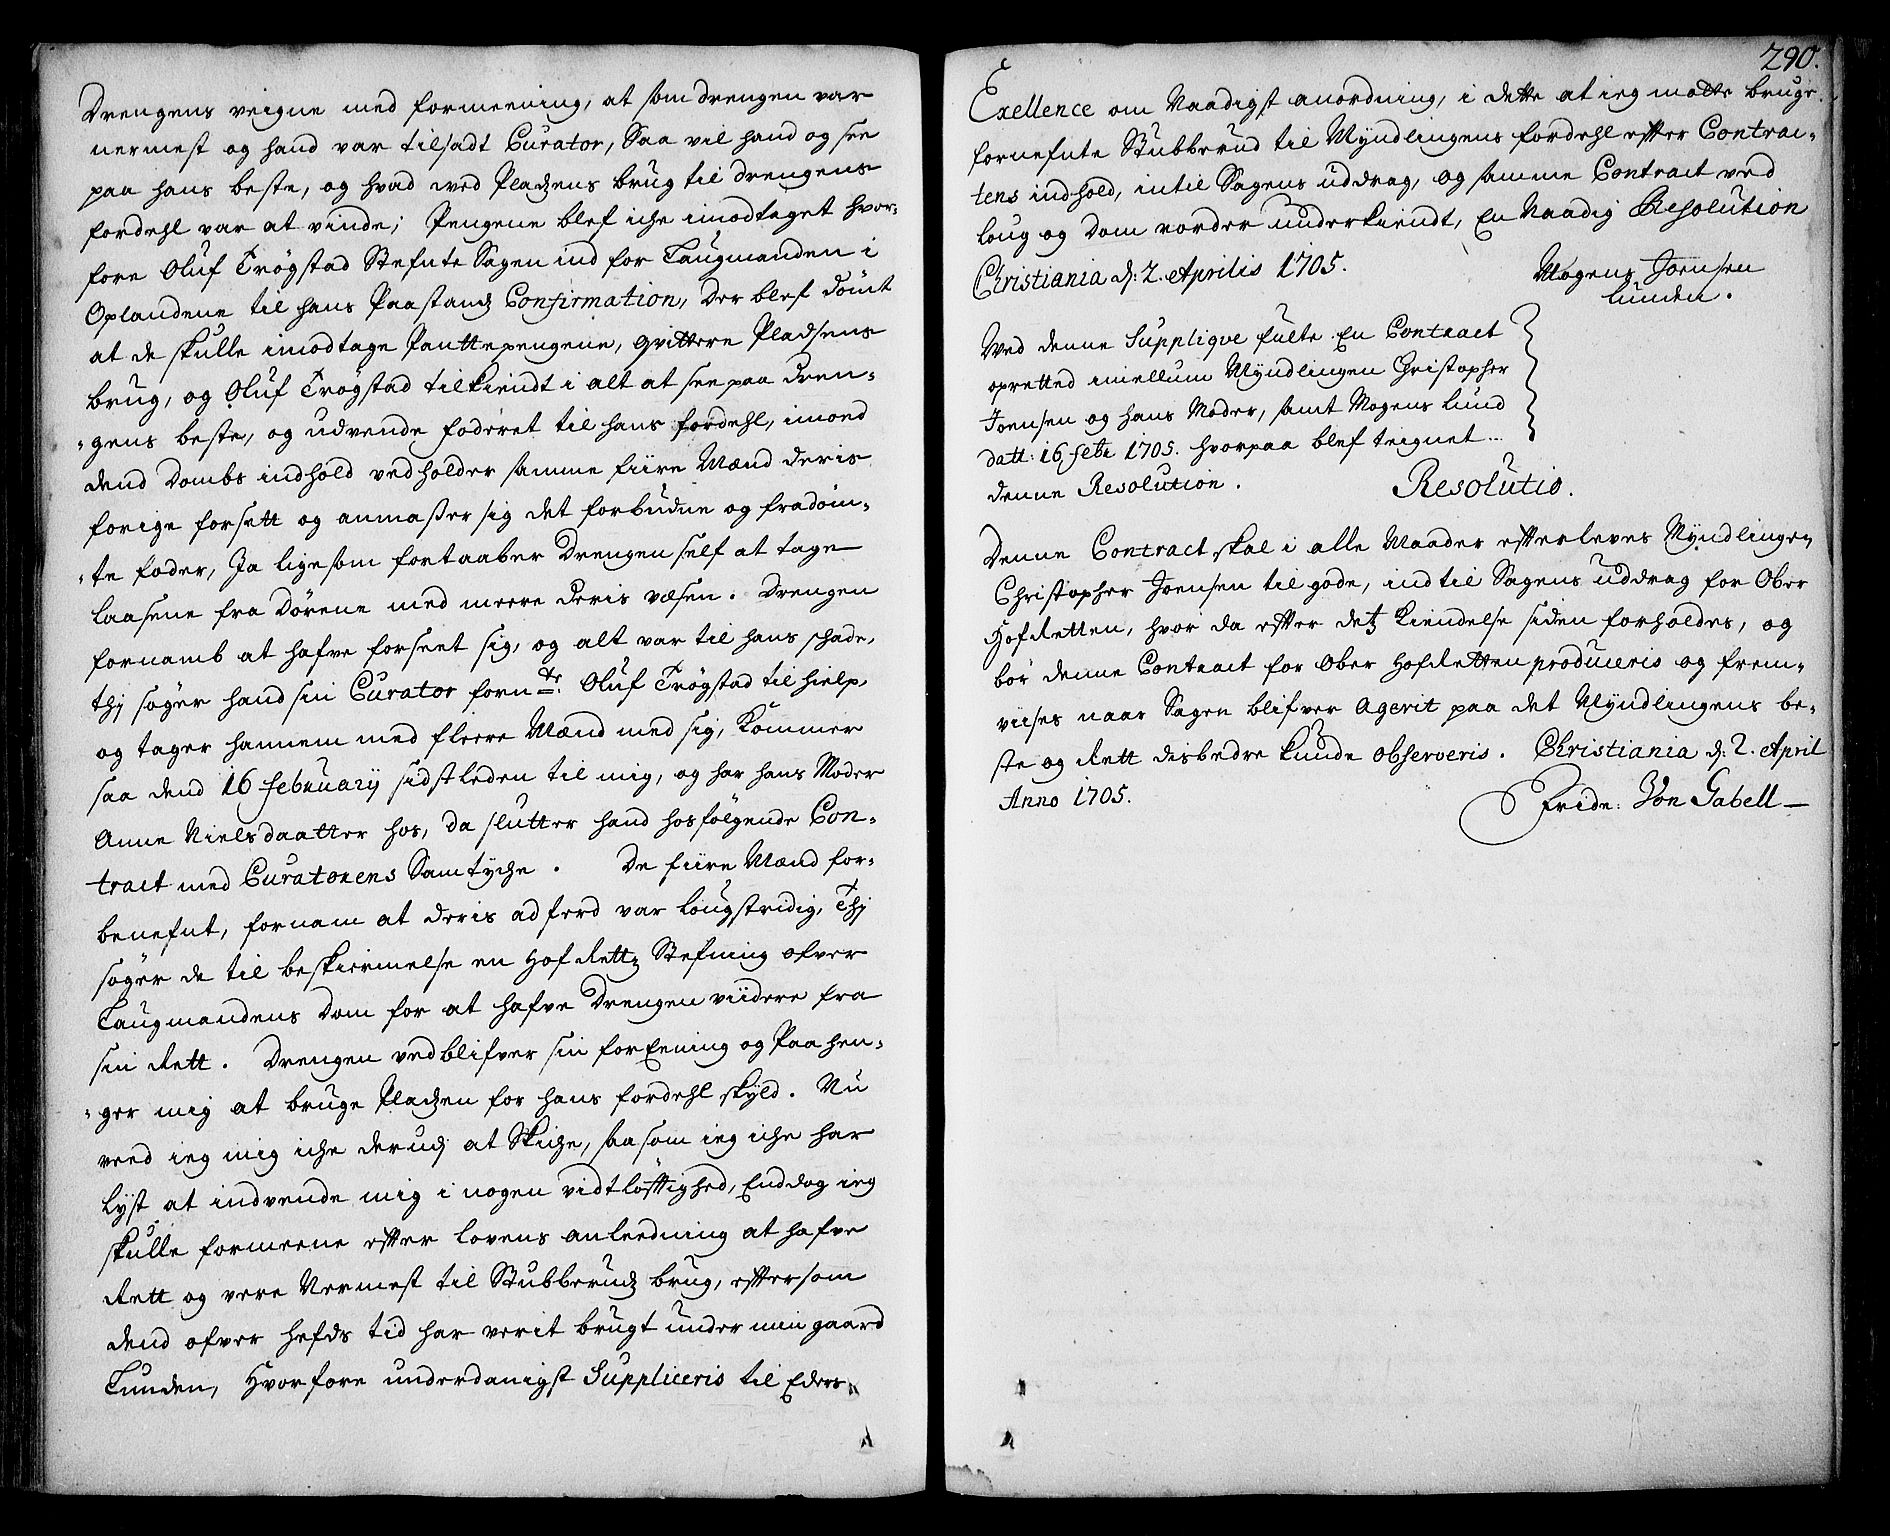 Drengens veigne med formeening, at som drengen var
nermest og hand var tilsadt Curator, Saa vil hand og see
paa hans beste, og hvad wed Pladzens brug til drengens
fordehl var at vinde; Pengene blef iche imodtaget hvor-
fore Oluf Trögstad Stefnte Sagen ind for Laugmanden i
Oplandene til hans Paastands Confirmation, der blef dömt
at de skulle imodtage Panttepengene, qvittere Pladsens
brug, og Oluf Trögstad tilkiendt i alt at see paa dren-
-gens beste, og udvende foderet til hans fordehl, imod
dend Dombs indhold vedholder samme fiire Mænd deris
forige forsett og anmaßer sig det forbudne og fradöm-
-te foder, Ja ligesom fortaaber Drengen self at tage
laasene fra Dörene med meere deris væsen. Drengen
fornamb at hafve forseet sig, og alt var til hans schade,
thj söger hand sin Curator fornte: Oluf Trögstad til hielp,
og tager hannem med fleere Mænd med sig, Kommer
saa dend 16 februarij sidstleden til mig, og har hans Moder
Anne Nielsdaatter hos, da slutter hand hosfölgende Con-
tract med Curatorens Samtyche. De fiire Mænd for-
benefnt, fornam at deris adferd var lougstridig, Thj
söger de til beskiermelse en Hof Rettz Stefning ofver
Laugmandens Dom for at hafve Drengen viidere fra
sin Rett. Drengen vedblifver sin forEening og Paahen-
-ger mig at bruge Pladzen for hans fordehl skyld. Nu
veed ieg mig iche derudj at Skiche, saasom ieg iche har
lyst at indvende mig i nogen vidtlöfftighed, Enddog ieg
skulle formeene efter lovens anleedning at hafve
Rett og vere Nermest til Stubberudz brug, eftersom
dend ofver hefds tid har verit brugt under min gaard
Lunden, Hvorfore underdanigst Suppliceris til Eders
290.
Exellence om Naadigst anordning, i dette at ieg motte bruge
fornefnte Stubberud til Myndlingens fordehl efter Contrac-
tens indhold, intil Sagens uddrag, og samme Contract ved
loug og Dom vorder underkiendt, En Naadig Resolution
Christiania d: 2. Aprilis 1705.
Mogens Joensen
Lunden.
Wed denne Supplique fulte En Contract
opretted imellum Myndlingen Christopher
Joensen og hans Moder, samt Mogens Lund
datt: 16 febr 1705. hvorpaa blef teignet
denne Resolution.
Resolutio.
Denne Contract skal i alle Maader efterleves Myndlingen
Christopher Joensen til gode, indtil Sagens uddrag for Ober
Hof Retten, hvor da efter detz Kiendelse siden forholdes, og
bör denne Contract for Ober Hof Retten produceris og frem-
viises naar Sagen blifver Agerit paa det Myndlingens be-
ste og Rett disbedre kunde observeris. Christiania d: 2. April
Anno 1705.
Fride: Von Gabell